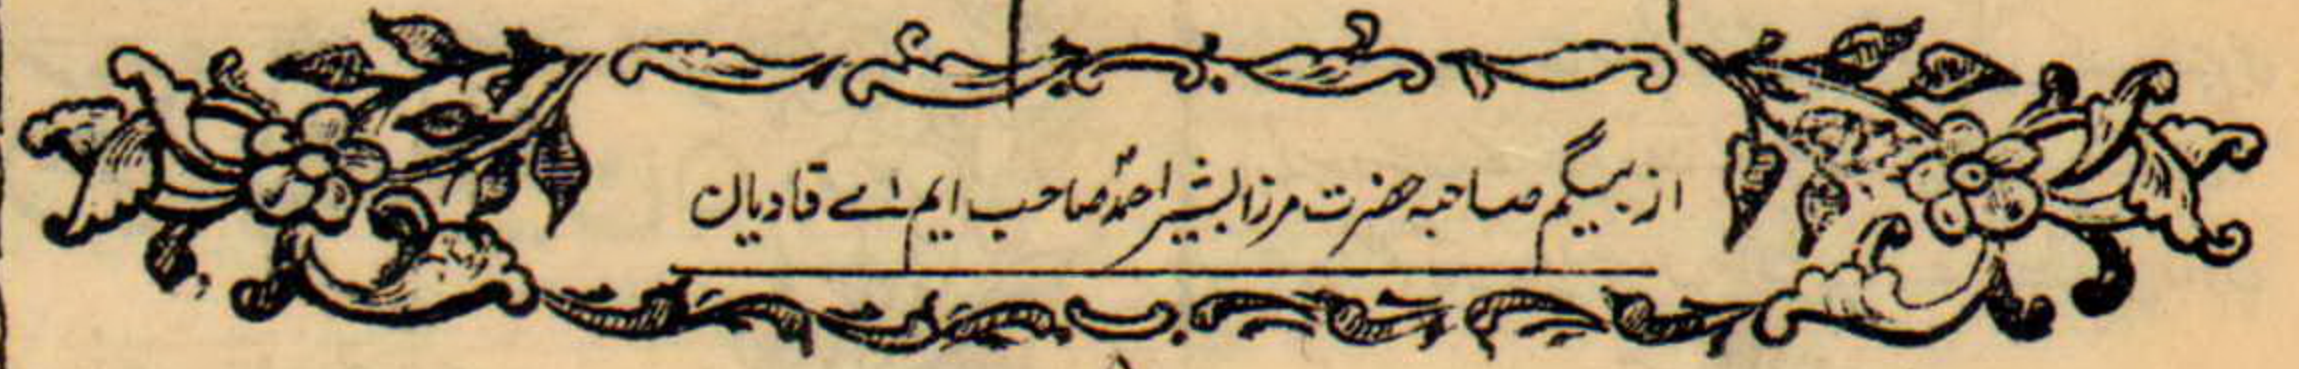 از بیگم صاحبہ حضرت مرزا بشیر احمد صاحب ایم اے قادیان